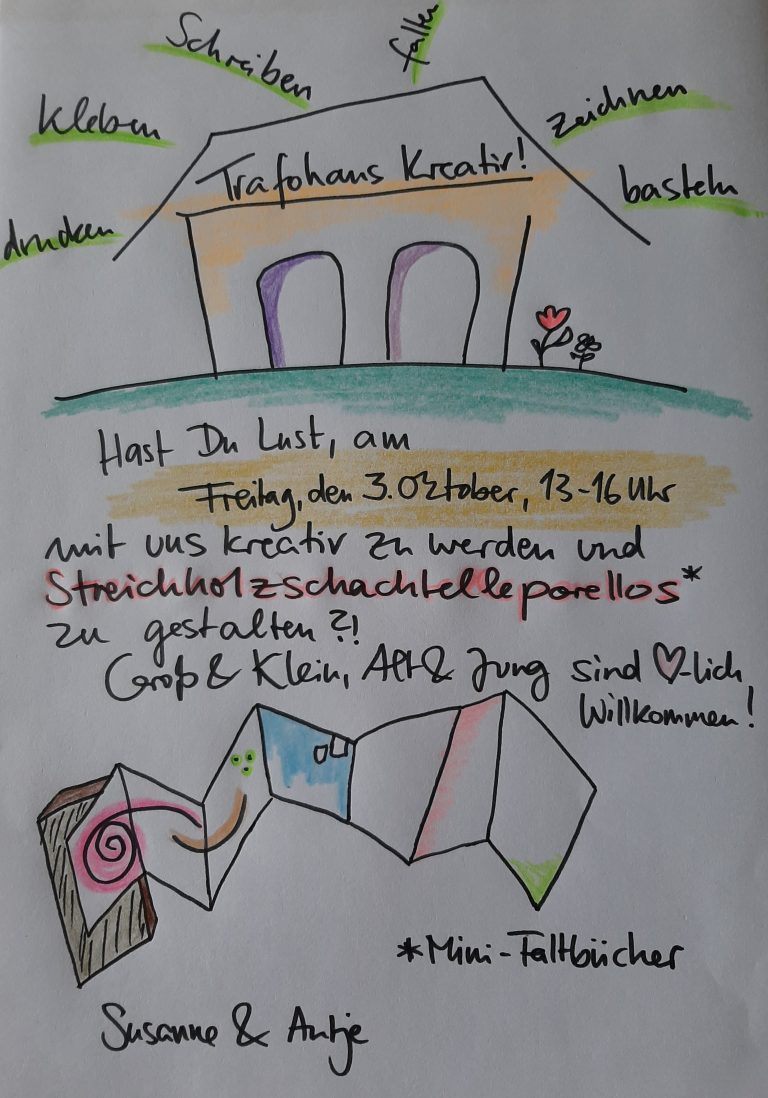 Schreiben
falten
kleben
zeichnen
drucken
basteln
Trafohaus Kreativ!
Hast Du Lust, am
Freitag, den 3. Oktober, 13-16 Uhr
mit uns kreativ zu werden und
Streichholzschachtelleporellos*
zu gestalten?!
Groß & Klein, Alt & Jung sind ♡-lich
Willkommen!
*Mini-Faltbücher
Susanne & Antje